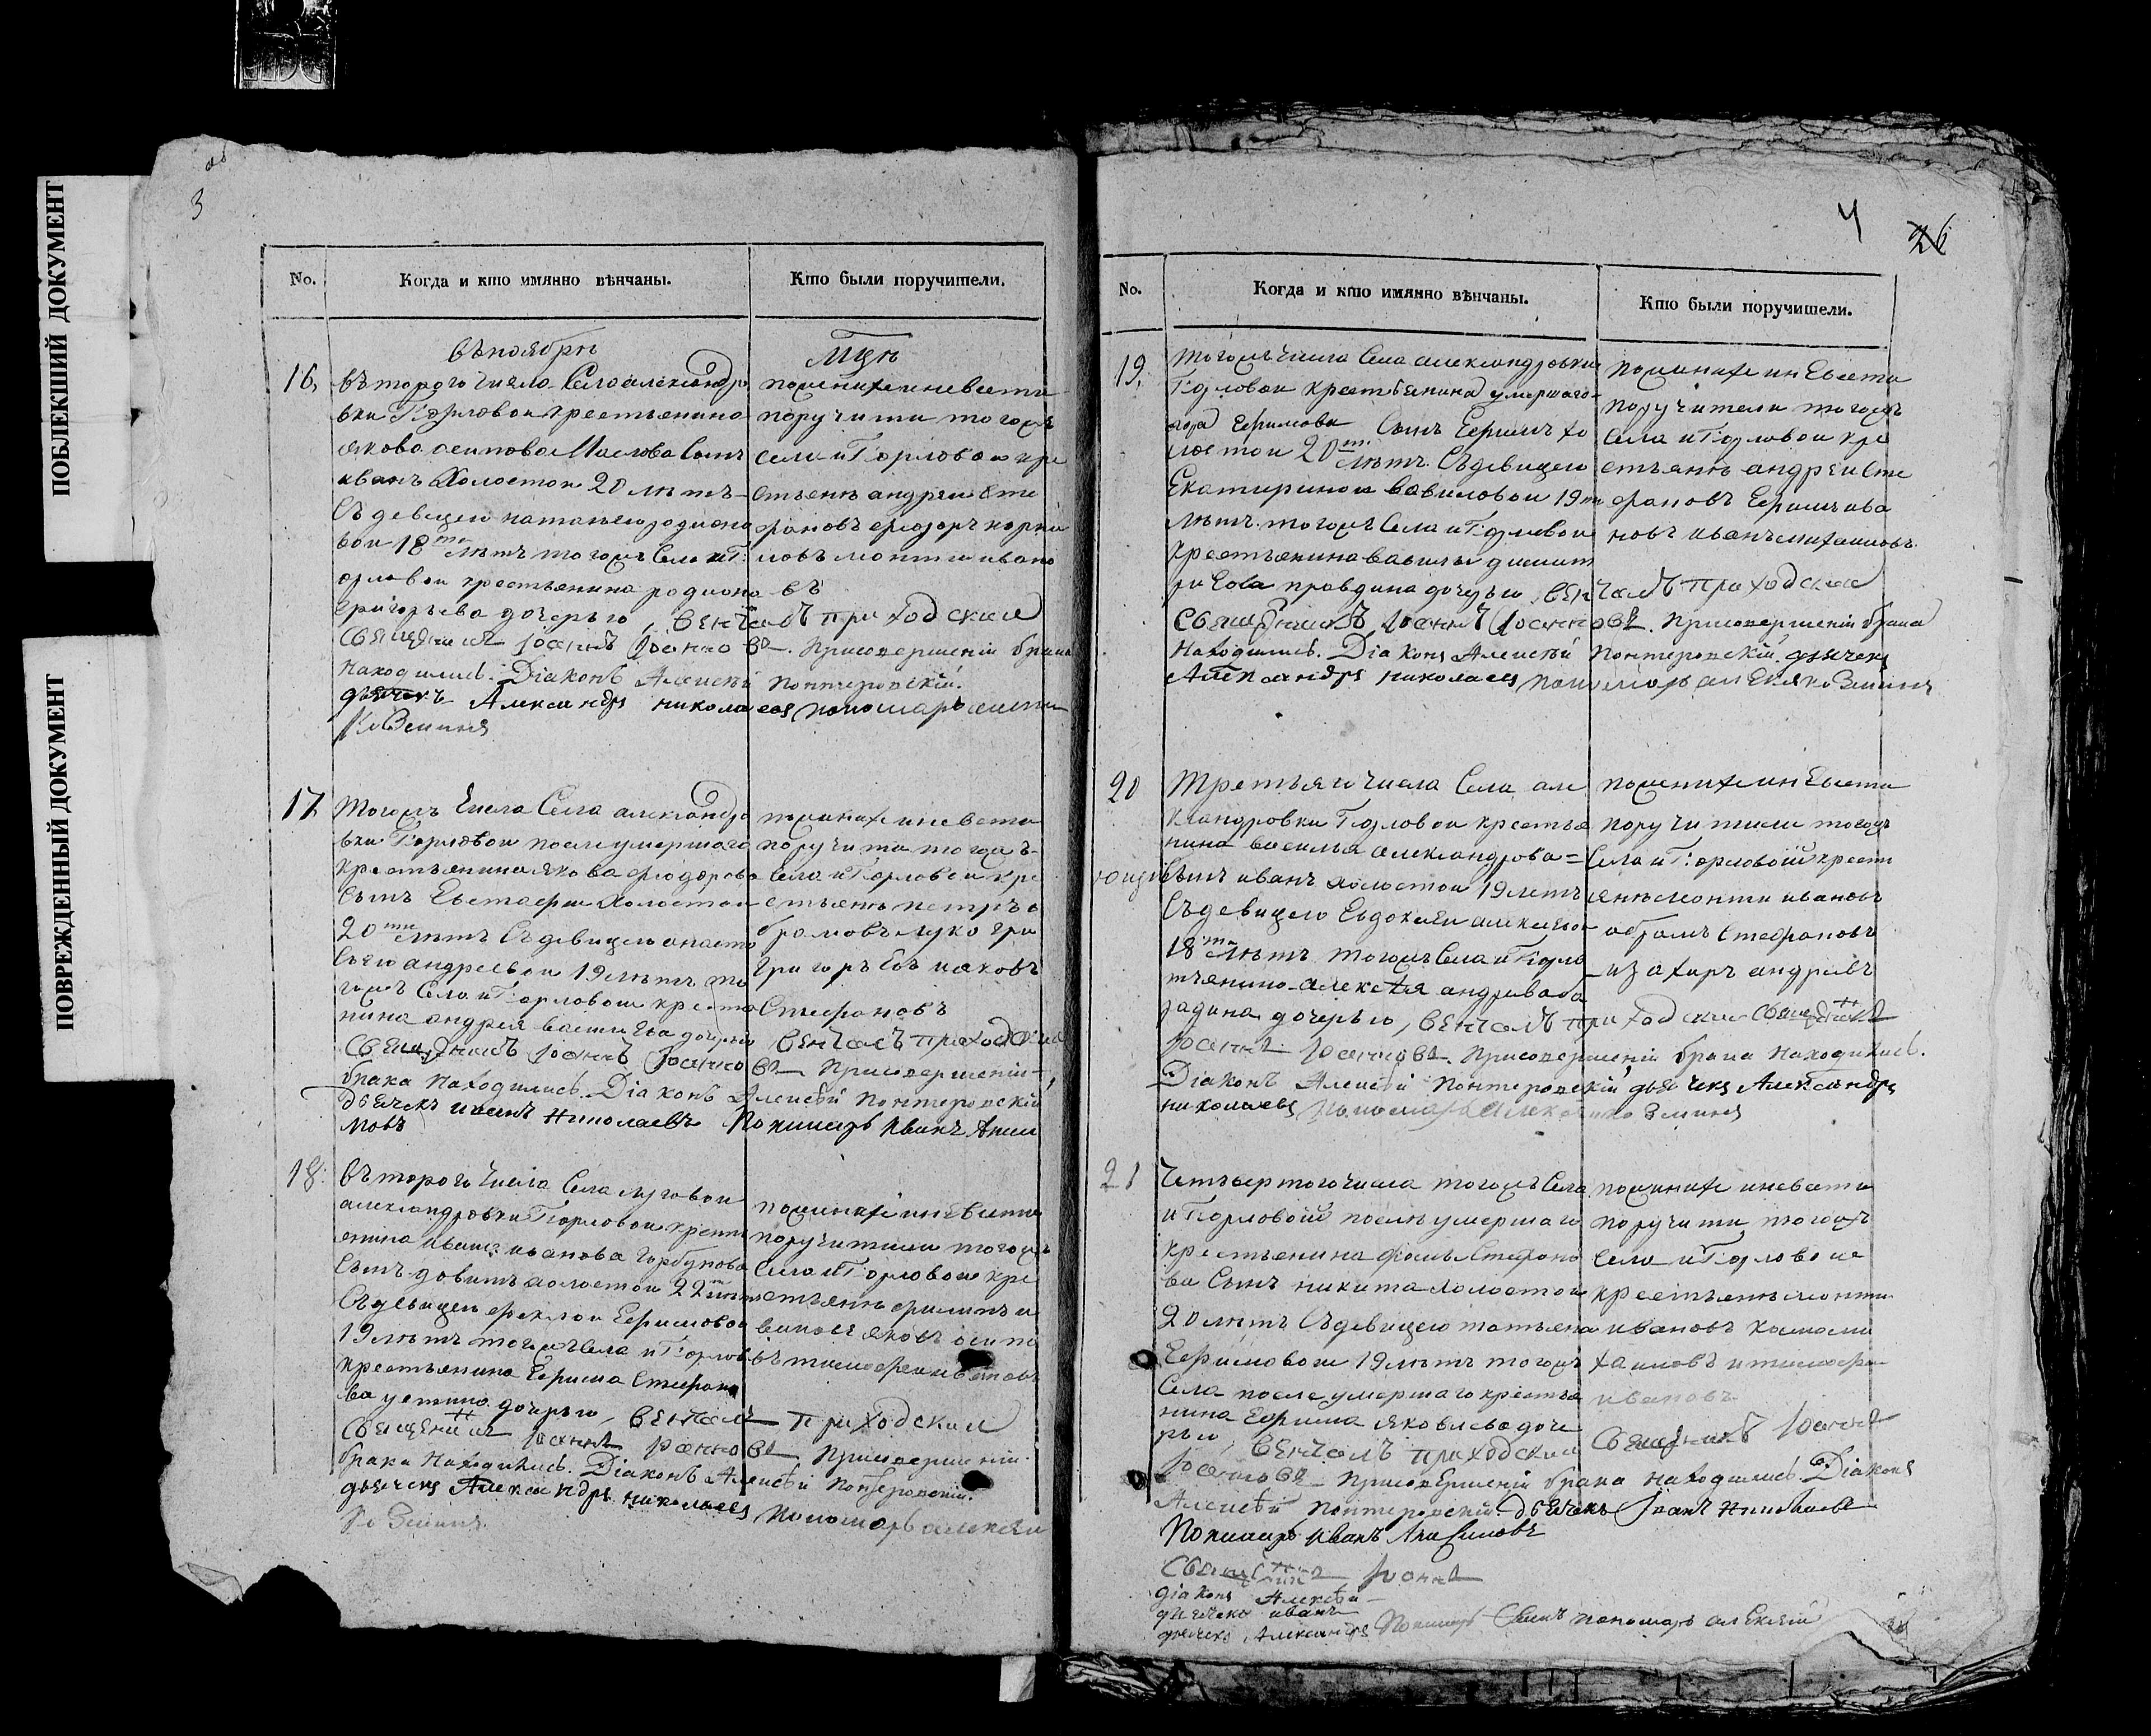 ПОБЛЕКШИЙ ДОКУМЕНТ
ПОВРЕЖДЕННЫЙ ДОКУМЕНТ
об
3
No.
Когда и кто имянно вѣнчаны.
Кто были поручители.
въ ноябрѣ
Мцѣ
16,
въторого числа Села александро
вки Г: орловои крестьянина
якова осипова Маслова Сынъ
иванъ Холостои 20 лѣтъ
Съ девицею наталею родионо
вои 18ти лѣтъ тогожъ Села и Г:
орловои крестьянина родиона
григорьева дочерью, венчалъ приходскии
Священникъ Іоаннъ Іоанновъ. При совершении брака
находились. Діаконъ Алексѣй Понтеровскій.
дьячекъ Александръ николаевъ пономарь алексѣи
Козминъ
по женихе и невести
поручители тогожъ
села и Г: орловои кре
стьянѣ андреи Сте
фановъ
монтеи ивано
въ
17
Тогожъ Числа Села александро
вки Г: орловои после умершаго
крестьянина якова федорова
Сынъ Евстафеи Холостои
20ти лѣтъ Съ девицею анаста
Сьею андреевои 19 лѣтъ то
гожъ Села и Г: орловои кресть
нина андрея дочерью
венчалъ приходскии
Священникъ Іоаннъ Іоанновъ При совершении
брака находились. Діаконъ Алексѣй Понтеровскій
дьячекъ иванъ Николаевъ Пономарь Иванъ Аниси
мовъ
по женихе и невести
поручители тогожъ
Села и Г: орловои кре
стьянѣ петръ а
брамовъ лука гри
григорьевъ иаковъ
Стефановъ
18.
въторого числа Села луговои
александровки Г: орловои крести
янина ивана иванова горбунова
Сынъ давитъ холостои 22 лѣтъ
Съ девицею феклои Ефимовои
19 лѣтъ тогожъ Села и Г: орлов
крестьянина Ефима Стефано
ва устина дочерью, венчалъ приходскии
Священникъ Іоаннъ Іоанновъ При совершении
брака находились. Діаконъ Алексѣй Понтеровскій.
дьячекъ Александръ николаевъ Пономарь алексѣи
Козминъ
по женихе и невести
поручители тогожъ
Села и Г: орловои кре
стьянѣ филипъ и
вановъ яковъ осипо
въ тимофеи
4
26
No.
Когда и кто имянно вѣнчаны.
Кто были поручители.
19,
тогожъ числа Села александровки
Г: орловои крестьянина умершаго
Ефимова Сынъ Ефимъ хо
лостои 20ти лѣтъ. Съ девицею
Екатеринои вавиловои 19ти
лѣтъ тогожъ Села и Г: орловои
крестьянина вавилы дмит
риева правдина дочерью венчалъ приходскии
Священникъ Іоаннъ Іоанновъ. При совершении брака
Находились. Діаконъ Алексѣй Понтеровскій. дьячекъ
Александръ николаевъ пономарь алексѣи Козминъ
по женихе и невести
поручители тогожъ
Села и Г: орловои кре
стьянѣ андреи Сте
фановъ Ефимъ ива
новъ иванъ михаиловъ.
20
Третьяго числа Села але
ксандровки Г: орловои крестья
нина василья александрова
Сынъ иванъ холостои 19 летъ
Съ девицею Евдокиеи алексѣво
18ти лѣтъ тогожъ Села и Г: орло
тьянина алексѣя андреева ба
задина дочерью, венчалъ приходскии Священникъ
Іоаннъ Іоанновъ. При совершении брака Находились.
Діаконъ Алексѣй Понтеровскій, дьячекъ Александръ
николаевъ Пономарь алексѣи Козминъ
по женихе и невести
поручители тогожъ
Села и Г: орловой крести
янѣ монтеи ивановъ
абрамъ Стефановъ
и захаръ андреевъ
21
Четьвертого числа тогожъ Села
и Г: орловой послѣ умершаго
крестьянина фомы Стефано
ва Сынъ никита холостои
20 лѣтъ Съ девицею татьяно
Ефимовои 19 лѣтъ тогожъ
Села после умершаго крестья
нина Ефима яковлева доче
рью, венчалъ приходскии Священникъ Іоаннъ
Іоанновъ При совершении брака находились. Діаконъ
Алексѣй Понтеровскій. дьячекъ Іванъ Николаевъ
Пономарь Иванъ Анисимовъ
по женихе и невести
поручители тогожъ
Села и Г: орловои
крестьянѣ монтеи
ивановъ
и тимофеи
ивановъ
Священникъ Іоаннъ
діаконъ Алексѣй
дьячекъ иванъ
дьячекъ Александръ Пономарь Іванъ пономарь алЕксѣи